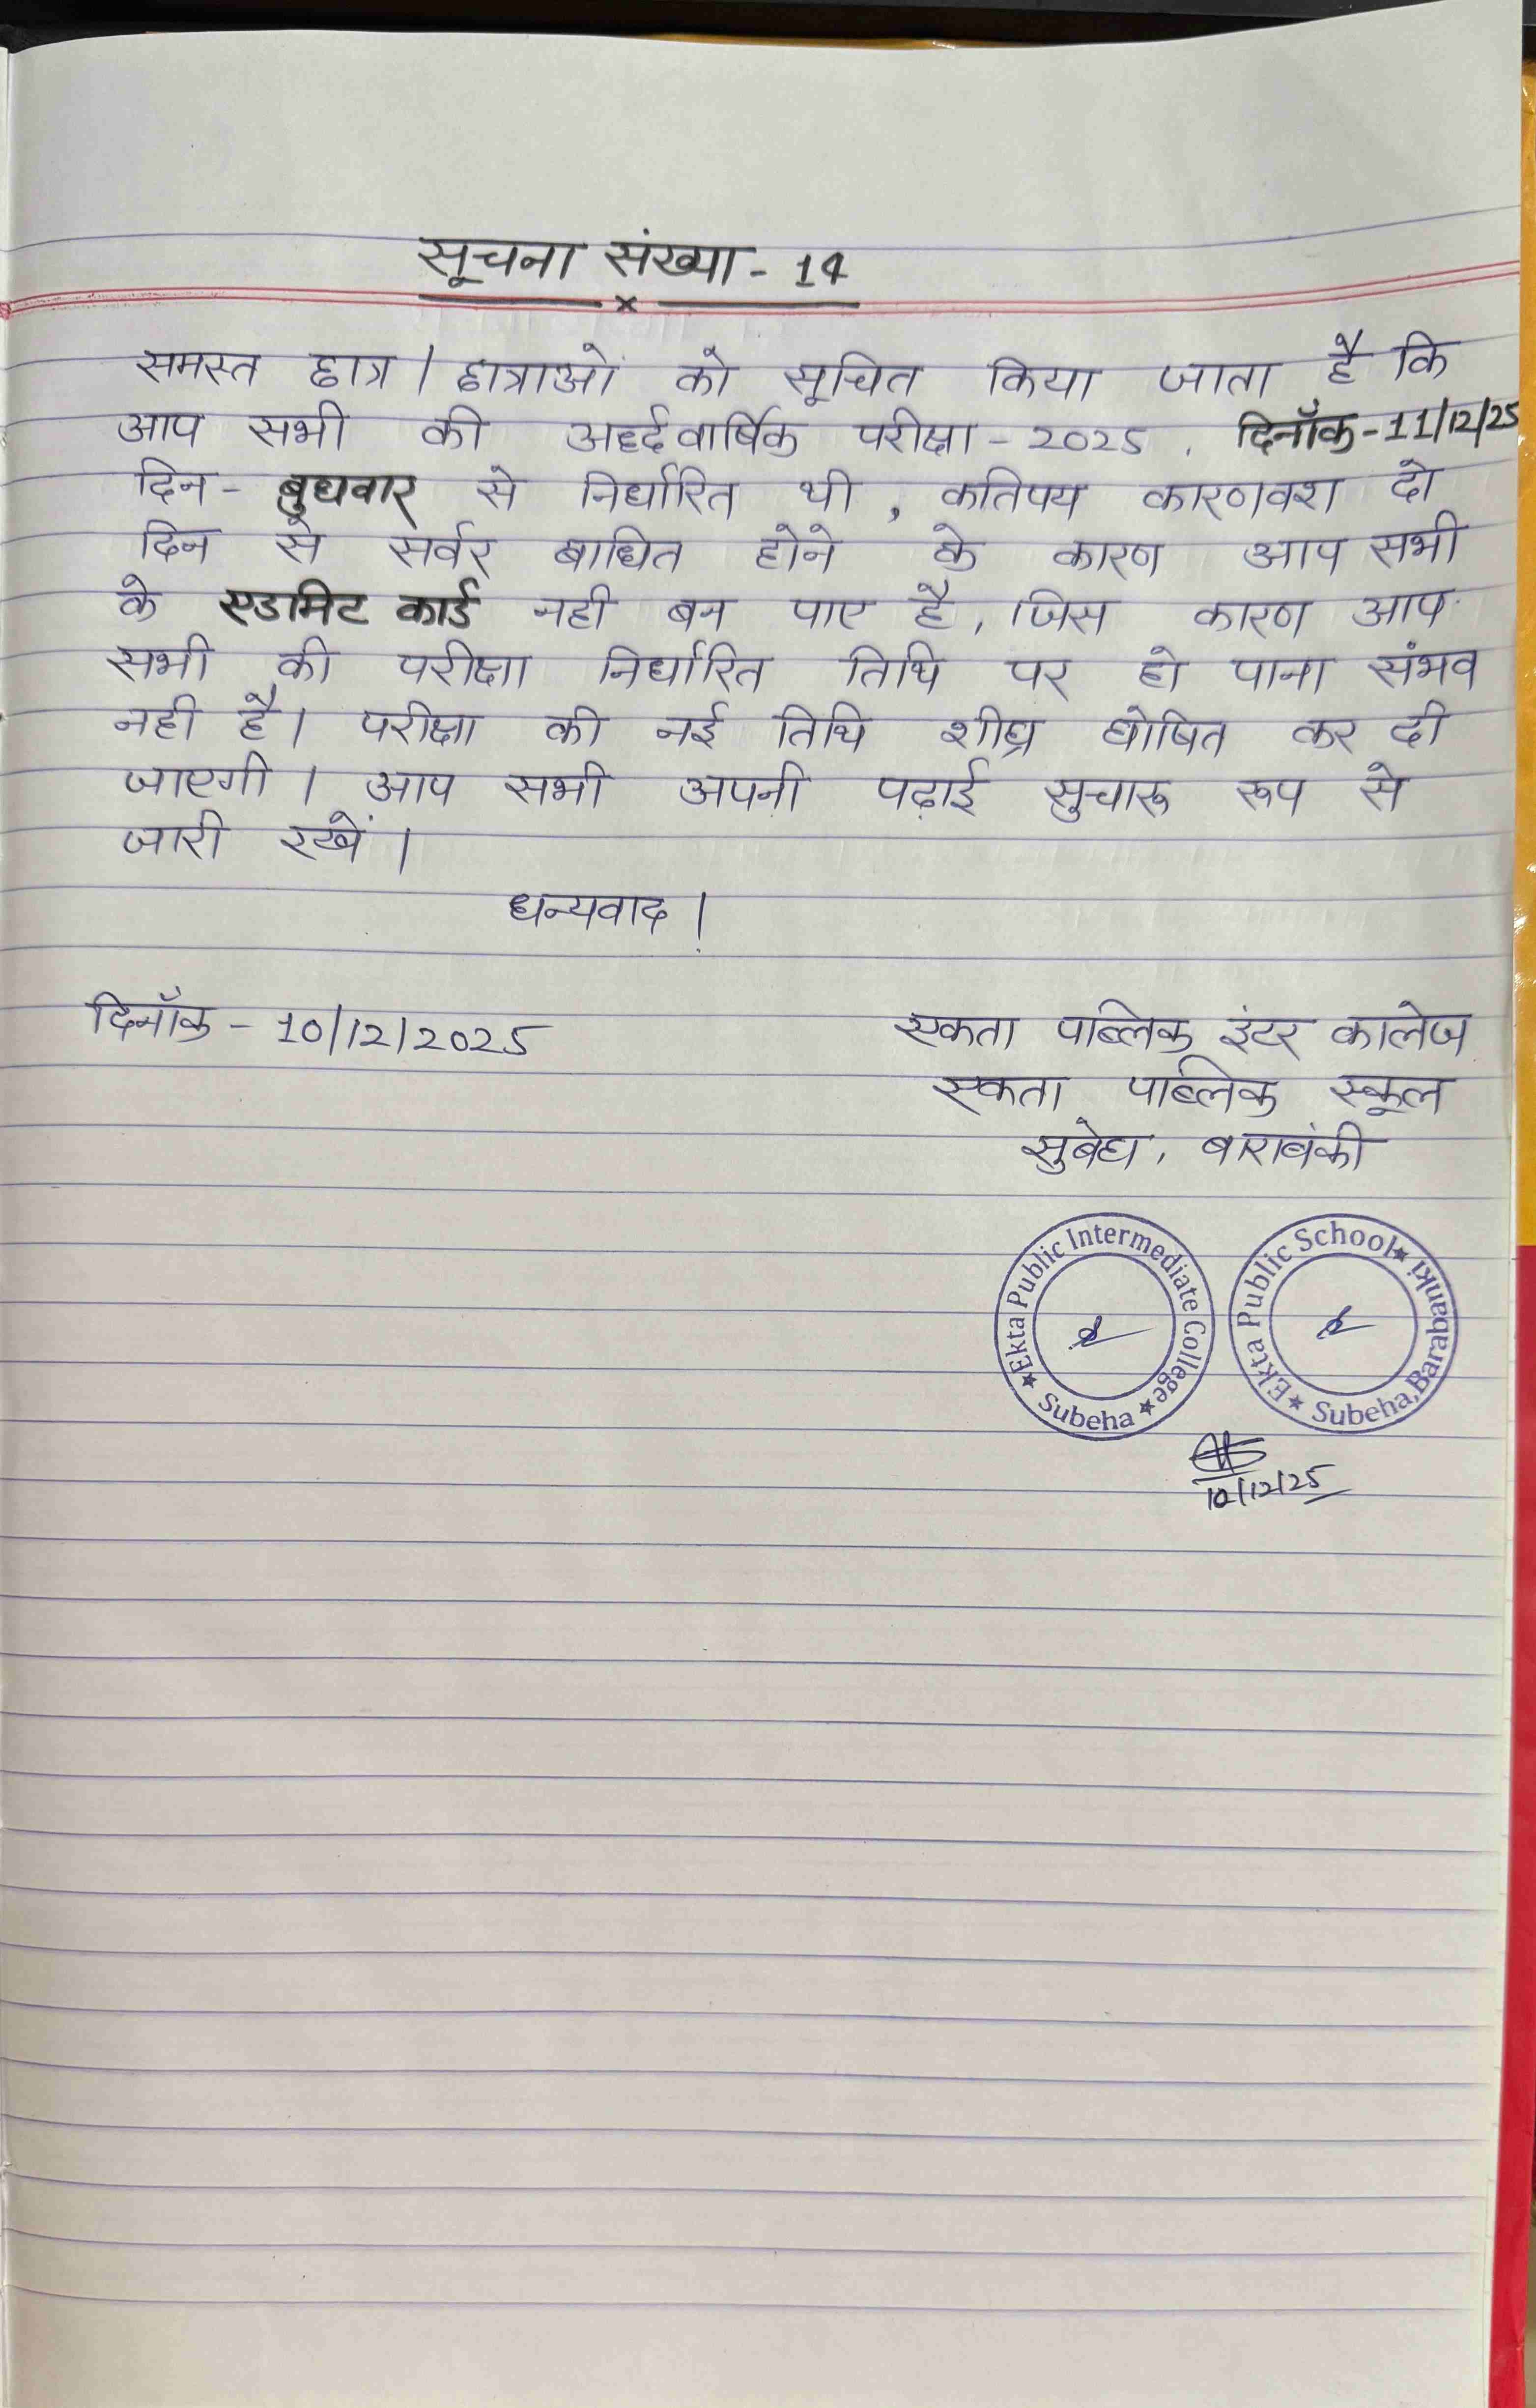 सूचना संख्या - 14
x
समस्त छात्र / छात्राओं को सूचित किया जाता है कि
आप सभी की अर्द्दवार्षिक परीक्षा - 2025, दिनाँक - 11/12/25
दिन - बुधवार से निर्धारित थी, कतिपय कारणवश दो
दिन से सर्वर बाधित होने के कारण आप सभी
के एडमिट कार्ड नही बन पाए है, जिस कारण आप
सभी की परीक्षा निर्धारित तिथि पर हो पाना संभव
नही है। परीक्षा की नई तिथि शीघ्र घोषित कर दी
जाएगी। आप सभी अपनी पढ़ाई सुचारू रूप से
जारी रखें।
धन्यवाद।
दिनाँक - 10/12/2025
एकता पब्लिक इंटर कालेज
एकता पब्लिक स्कूल
सुबेहा, बाराबंकी
★Ekta Public Intermediate College★ Subeha
★Ekta Public School★ Subeha, Barabanki
10/12/25